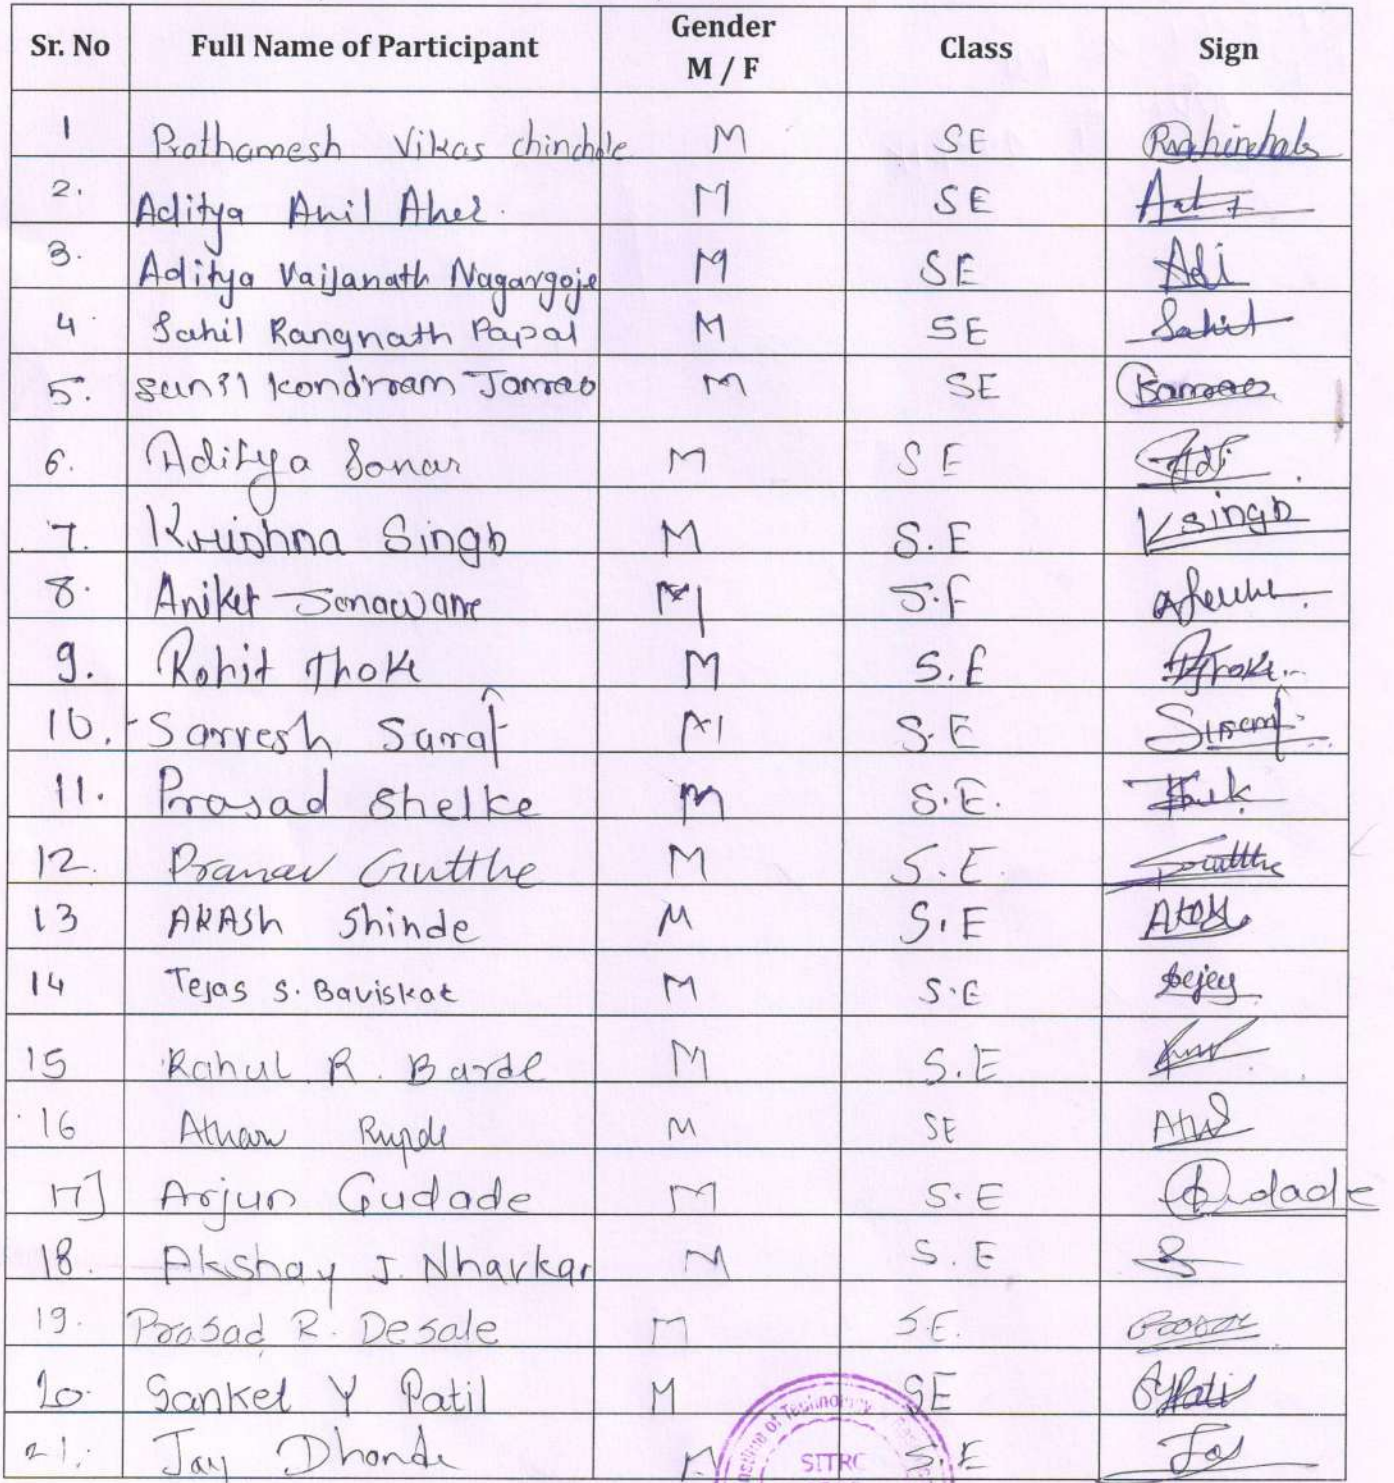 Sr. No Full Name of Participant Gender M / F Class Sign
1 Prathamesh Vikas chinchole M SE
2. Aditya Anil Aher. M SE
3. Aditya Vaijanath Nagargoje M SE Adi
4 Sahil Rangnath Papal M SE Sahil
5. Sunil Kondiram Jamrao M SE
6. Aditya Sonar M SE Adi
7. Krishna Singh M S.E Ksingh
8. Aniket Sonawane M S.E
9. Rohit Thoke M S.E
10. Sarvesh Saraf M S.E
11. Prasad Shelke M S.E.
12. Pranav Gutthe M S.E.
13 AKASh Shinde M S.E
14 Tejas S. Baviskar M S.E
15 Rahul R. Barde M S.E
16 Atharv M SE
17] Arjun Gudade M S.E Gudade
18. Akshay J. Nharkar M S.E
19. Prasad R. Desale M S.E.
20 Sanket Y Patil M SE
21. Jay Dhonde M S.E Jay
of Technology
SITRC